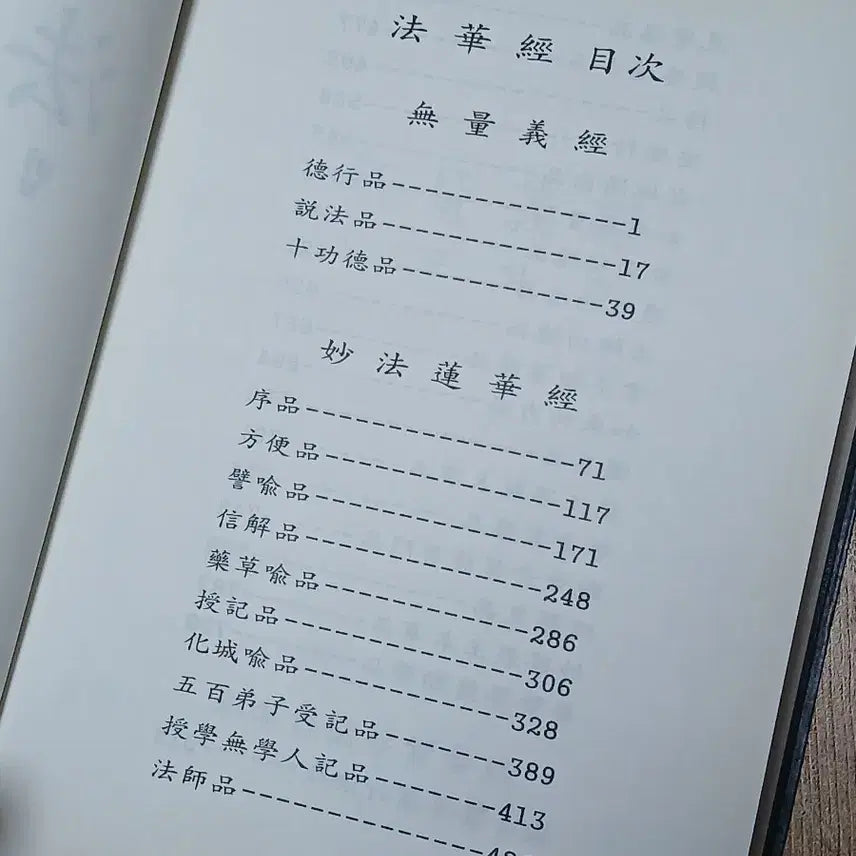 法華經 目次
無量義經
德行品--------------1
説法品--------------17
十功德品------------39
妙法蓮華經
序品----------------71
方便品--------------117
譬喩品--------------171
信解品--------------248
藥草喩品------------286
授記品--------------306
化城喩品------------328
五百弟子受記品-------389
授學無學人記品-------413
法師品--------------